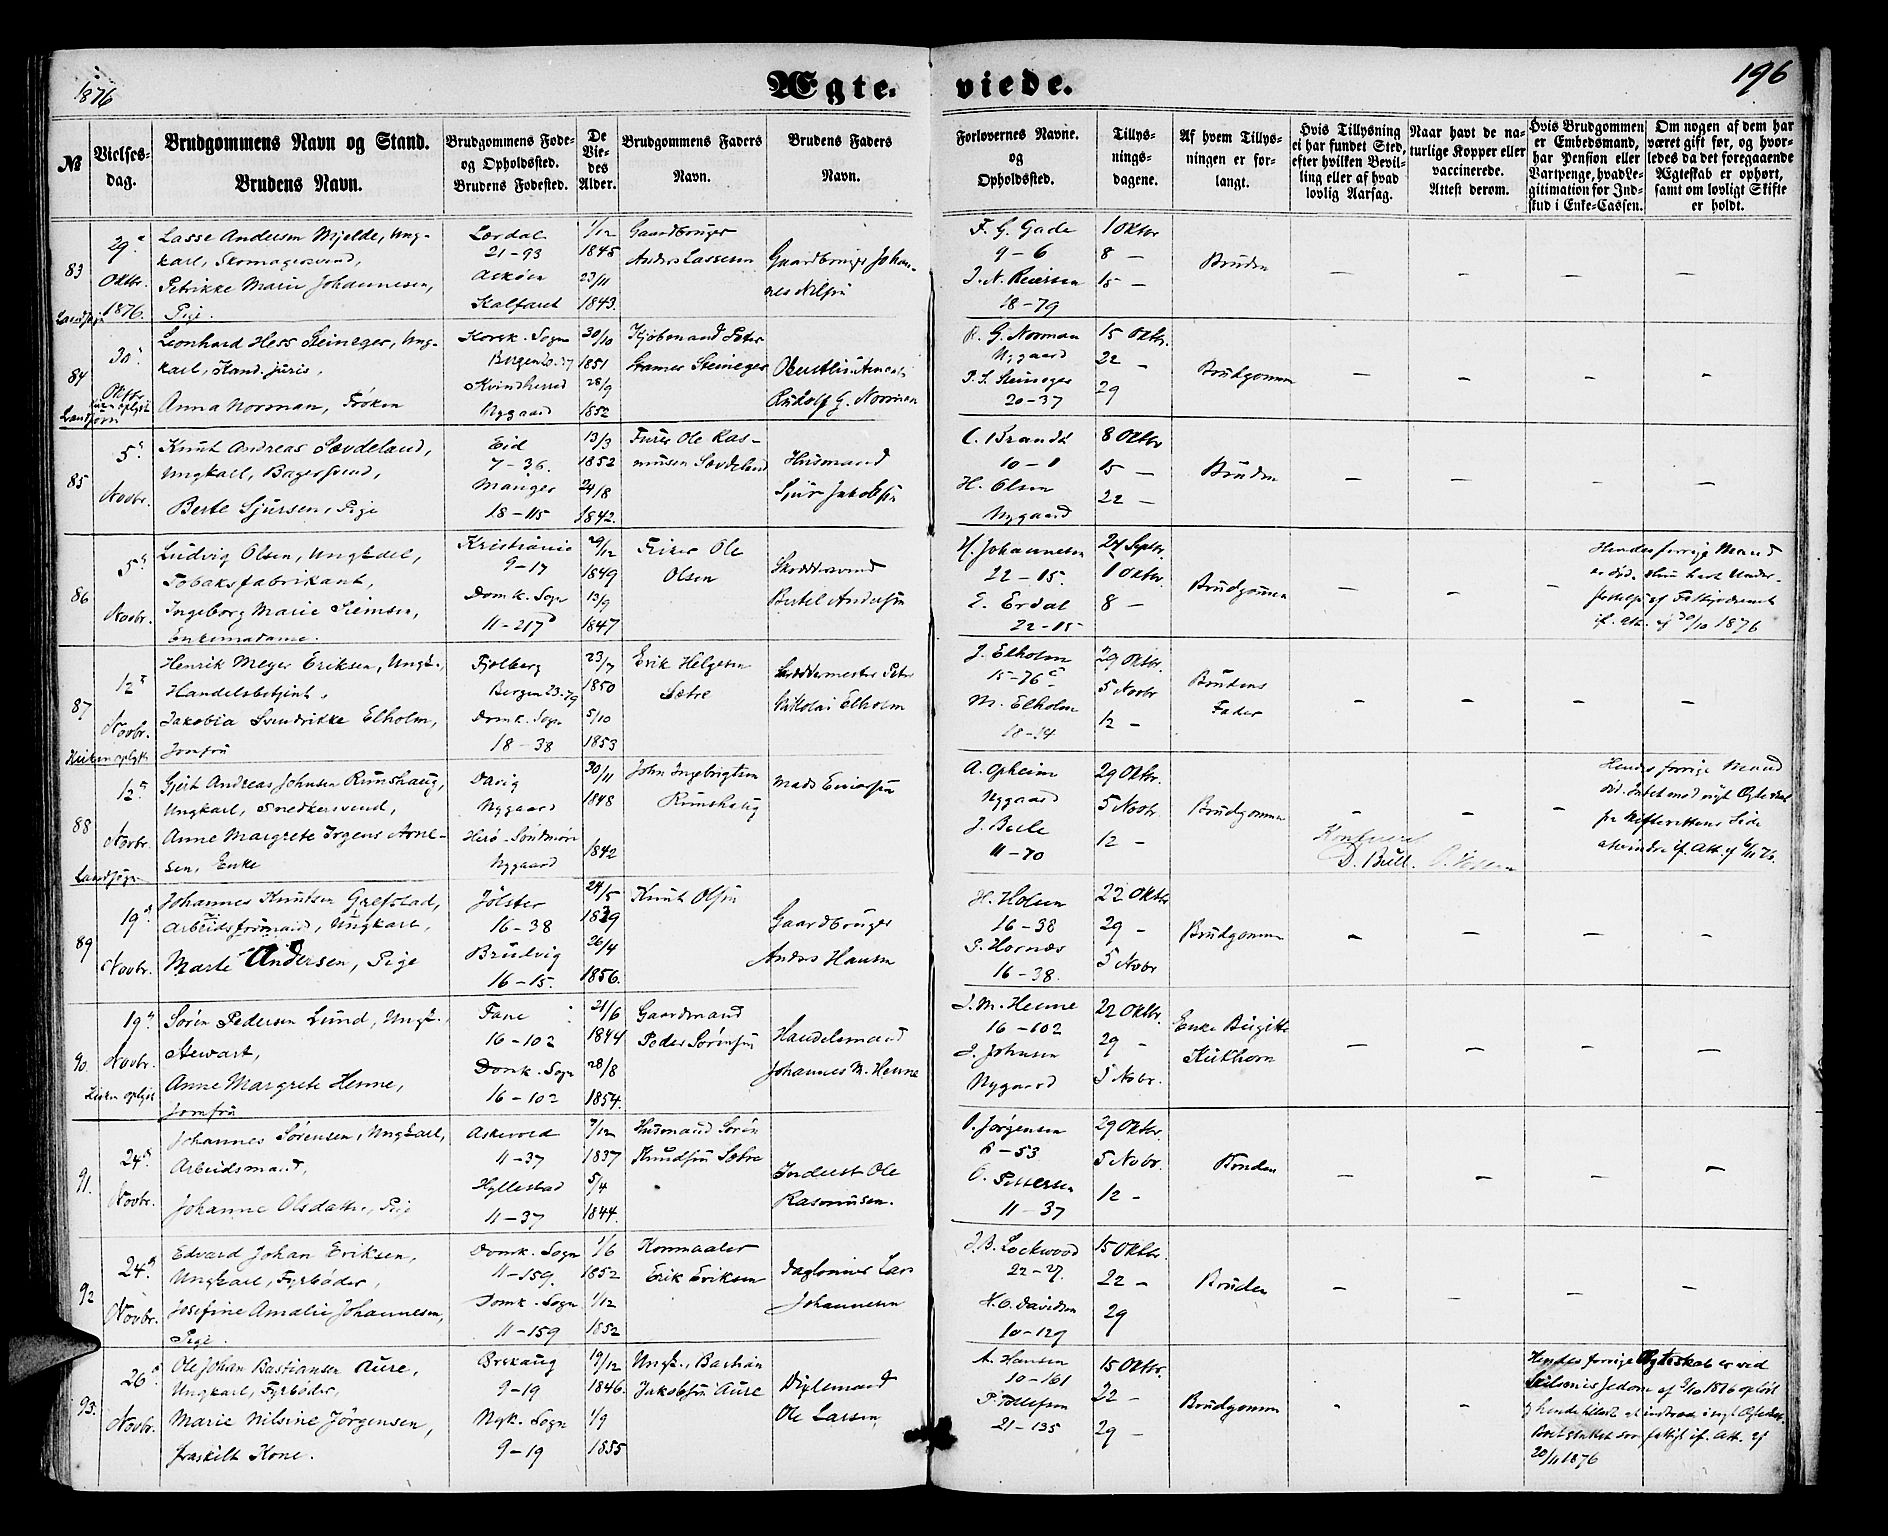 1876
Ægteviede.
196
№
Vielsesdag.
Brudgommens Navn og Stand.
Brudens Navn.
Brudgommens Føde-
og Opholdssted.
Brudens Fødested.
De
Vie-
des
Alder.
Brudgommens Faders
Navn.
Brudens Faders
Navn.
Forlovernes Navne.
og
Opholdssted.
Tillys-
nings-
dagene.
Af hvem Tillys-
ningen er for-
langt.
Hvis Tillysning
ei har fundet Sted,
efter hvilken Bevil-
ling eller af hvad
lovlig Aarsag.
Naar havt de na-
turlige Kopper eller
vaccinerede.
Attest derom.
Hvis Brudgommen
er Embedsmand,
har Pension eller
Vartpenge, hvad Le-
gitimation for Ind-
skud i Enke-Cassen.
Om nogen af dem har
været gift før, og hvor-
ledes da det foregaaende
Ægteskab er ophørt,
samt om lovligt Skifte
er holdt.
83
29
Oktbr.
1876.
Lasse Andersen Mjelde, Ung-
karl, Skomagersvend,
Petrikke Marie Johannesen,
Pige.
Lærdal
21-93
Askøen
Kalfaret
1/12
1845
23/11
1843.
Gaardbruger
Anders Lassesen
Gaardbruger Johan-
nes Nilsen
F. G. Gade
9-6
J. N. Reiersen
18-79
1 Oktbr
8 —
15 —
Bruden
84
30
Oktbr.
Leonhard Hess Steineger, Ung-
karl, Kand. juris,
Anna Norman, Frøken
Korsk. Sogn
Bergen 20.37
Kvindherred
Nygaard
30/10
1851
28/9
1852
Kjøbmand Peter
Steineger
Rudolf G. Norman
R. G. Norman
Nygaard
P. S. Steineger
20-37
15 Oktbr.
22 —
29
Brudgommen
85
5
Novbr.
Knut Andreas Sævdeland,
Ungkarl, Bagersvend,
Berte Sjursen, Pige
Eid
7-36.
Manger
18-115
13/3
1852
24/8
1842.
Ole Ras-
musen Sævdeland
Husmand
Sjur Jakobsen
C. Brandt
10-1
H. Olsen
Nygaard
8 Oktbr
15 —
22 —
Bruden
86
5
Novbr.
Ludvig Olsen, Ungkarl,
Tobaksfabrikant,
Ingeborg Marie Siemsen,
Enkemadame.
Kristiania
9-17
Domk. Sogn
11-217
29/12
1849
13/9
1847
Fisker Ole
Olsen
Skræddersvend
Bertel Andersen
H. Johannesen
22-15.
E. Erdal
22-15
24 Septbr.
1 Oktbr.
8 —
Brudgommen
Hendes forrige Mand
er død. Hun havt Under-
støttelse af Fattigvæsenet
if. att. af 30/10 1876
87
12
Novbr.
Henrik Meyer Eriksen, Ungk.,
Handelsbetjent,
Jakobia Svendrikke Elholm,
Jomfru
Fjelberg
Bergen 23.79
Domk. Sogn
18-38
23/7
1850
5/10
1853
Erik Helgesen
Sætre
Skræddermester Peter
Nikolai Elholm
J. Elholm
15-76
M. Elholm
18-14
29 Oktbr.
5 Novbr
12 —
Brudens
Fader
88
12
Novbr.
Gjert Andreas Johnsen Rimshaug,
Ungkarl, Snedkersvend,
Anne Margrete Irgens Arne-
sen, Enke
Davig
Nygaard
Herø - Søndmør
Nygaard
30/11
1848
1842
John Ingebrigtsen
Rimshaug
A. Opheim
Nygaard
J. Berle
11-70
29 Oktbr.
5 Novbr.
12 —
Brudgommen
D. Bull.
Hendes forrige Mand
død. Intet mod nyt Ægteskab
fra Skifterettens Side
89
19
Novbr.
Johannes Knutsen Grefstad,
Arbeidsformand, Ungkarl,
Marte Andersen, Pige
Jølster
16-38
Bruvig
16-15.
24/5
1829
26/4
1856.
Knut Olsen
Gaardbruger
Anders Hansen
H. Holsen
16-38
S. Hornæs
16-38.
22 Oktbr
29 —
5 Novbr
Brudgommen
90.
19
Novbr.
Søren Pedersen Lund, Ungk.,
Stewart,
Anne Margrete Henne,
Jomfru
Fane
16-102
Domk. Sogn
16-102
21/6
1844
28/8
1854.
Gaardmand
Peder Sørensen
Handelsmand
Johannes M. Henne
J. M. Henne
16-102
J. Johnsen
Nygaard
22 Oktbr.
29 —
5 Nobr.
Enke Birgitte
91.
24
Novbr.
Johannes Sørensen, Ungkarl,
Arbeidsmand,
Johanne Olsdatter, Pige
Askevold
11-37
Hyllestad
11-37
7/12
1837
5/4
1844.
Husmand Søren
Knudsen Sætre
Inderst Ole
Rasmusen.
O. Jørgensen
6-53
O. Pettersen
11-37
29 Oktbr.
5 Nobr.
12 —
Bruden
92
24
Novbr.
Edvard Johan Eriksen,
Ungkarl, Fyrbøder,
Josefine Amalie Johannesen,
Pige.
Domk. Sogn
11-159
Domk. Sogn
11-159
1/6
1852
1/12
1852
Kornmaaler
Erik Eriksen
Daglønner Lars
Johannesen
J. B. Lockwood
22-27.
H. O. Davidsen
10-129
15 Oktbr.
22 —
29
Bruden
93.
26
Novbr.
Ole Johan Bastiansen Aure,
Ungkarl, Fyrbøder,
Marie Nilsine Jørgensen,
fraskilt Kone.
Ørskaug
9-19
Nyk. Sogn
9-19
19/12
1846.
1/9
1855
Ungk., Bastian
Jakobsen Aure
Ole Larsen
A. Hansen
10-161
P. Tollefsen
21-135
15 Oktbr.
22 —
29 —
Brudgommen
Hendes forrige Ægteskab er ved
20/11 1876